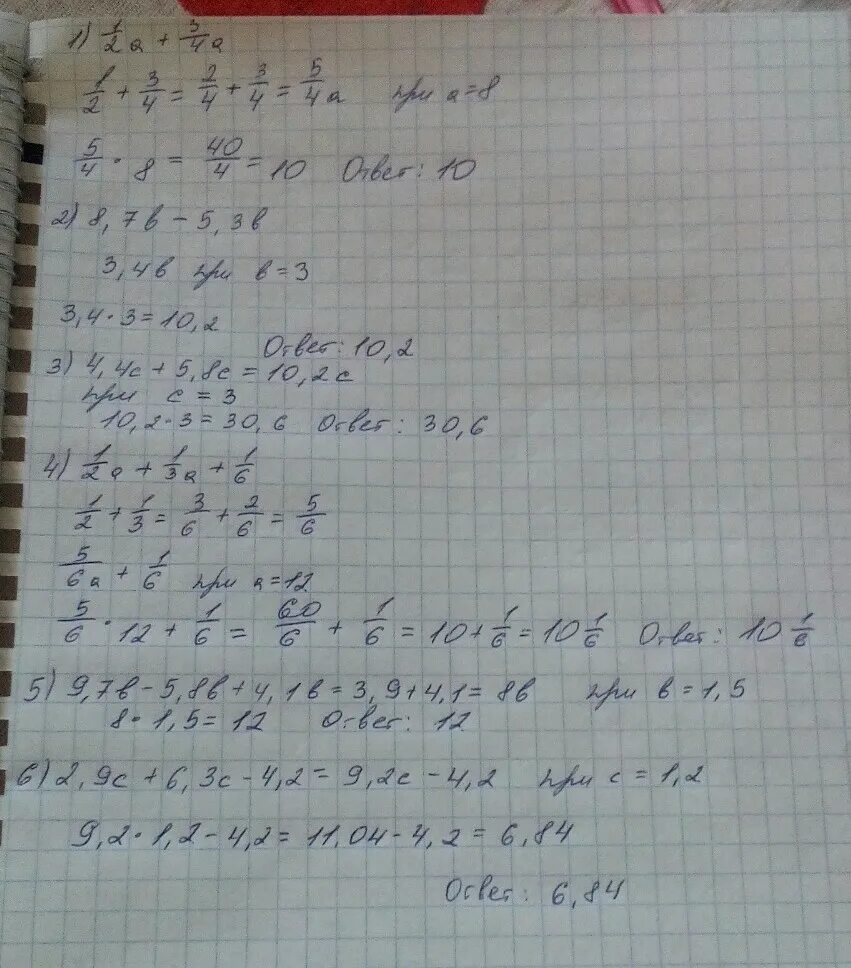 1) 1/2 a + 3/4 a
1/2 + 3/4 = 2/4 + 3/4 = 5/4 a при a=8
5/4 · 8 = 40/4 = 10 Ответ: 10
2) 8,7в - 5,3в
3,4в при в = 3
3,4 · 3 = 10,2
Ответ: 10,2
3) 4,4с + 5,8с = 10,2с
при с = 3
10,2 · 3 = 30,6 Ответ: 30,6
4) 1/2 a + 1/3 a + 1/6
1/2 + 1/3 = 3/6 + 2/6 = 5/6
5/6a + 1/6 при a = 12
5/6 · 12 + 1/6 = 60/6 + 1/6 = 10 + 1/6 = 10 1/6 Ответ: 10 1/6
5) 9,7в - 5,8в + 4,1в = 3,9 + 4,1 = 8в при в = 1,5
8 · 1,5 = 12 Ответ: 12
6) 2,9с + 6,3с - 4,2 = 9,2с - 4,2 при с = 1,2
9,2 · 1,2 - 4,2 = 11,04 - 4,2 = 6,84
Ответ: 6,84